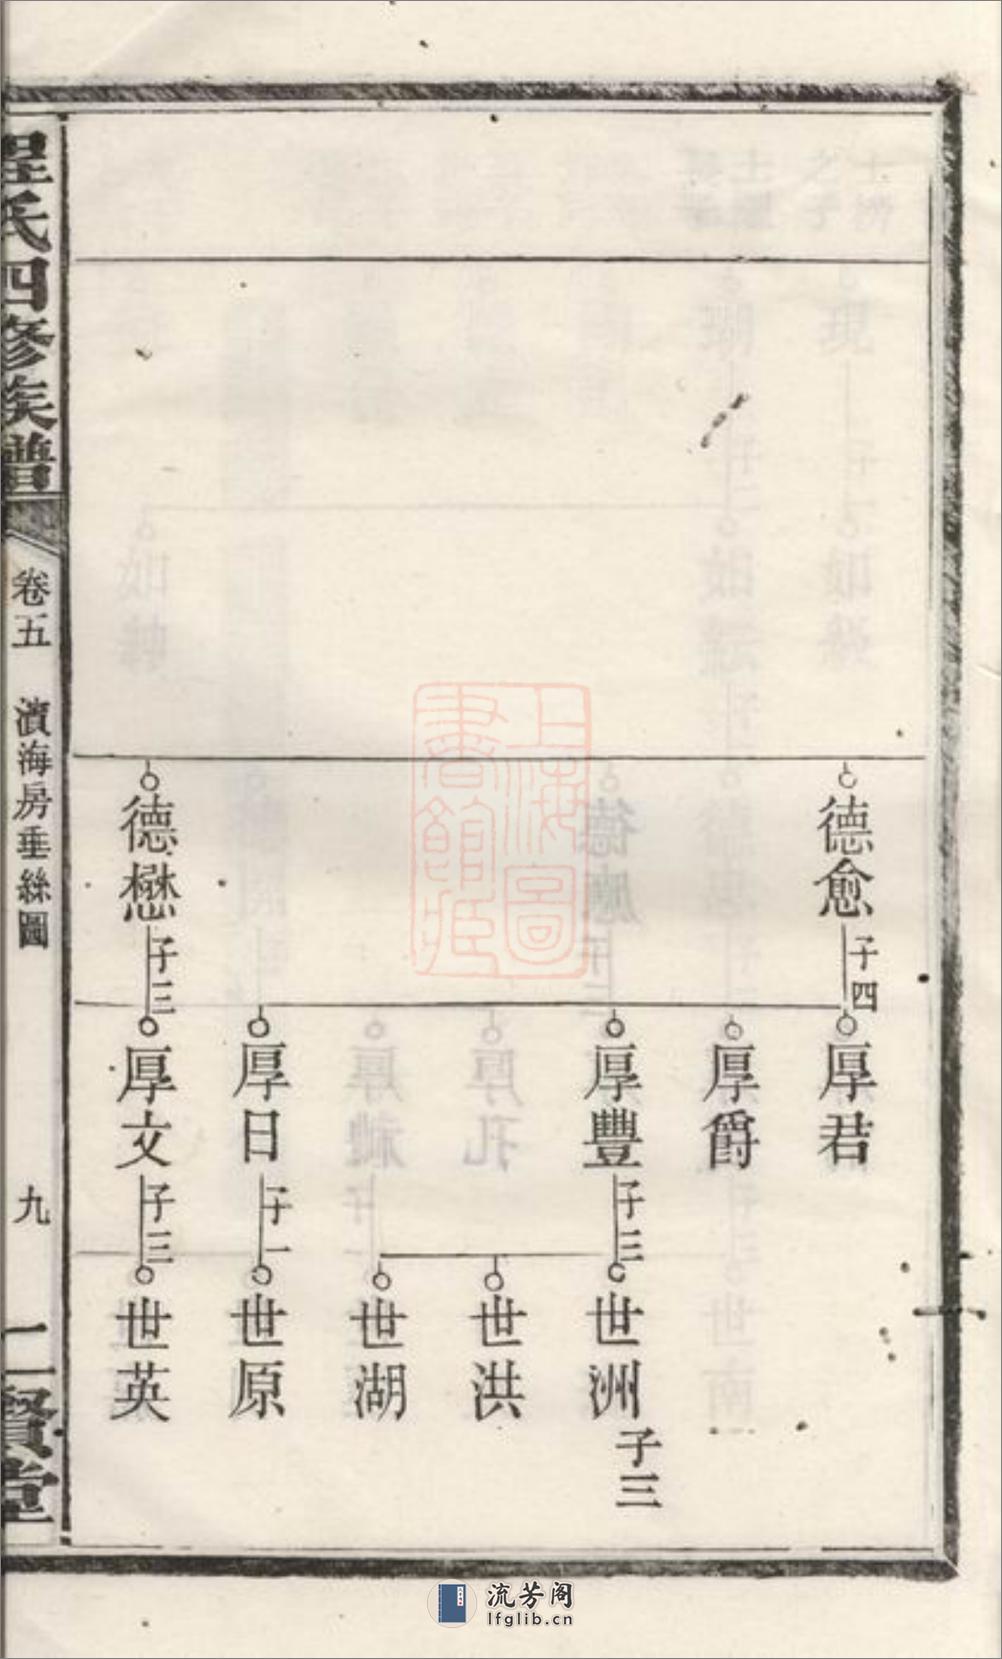 程氏四修族譜
卷五
濱海房垂絲圖
九
二賢堂
德愈
子四
厚君
厚爵
厚豐
子三
世洲
子三
世洪
世湖
厚日
子一
世原
德懋
子三
厚文
子三
世英
上海圖書館藏
流芳阁
lfglib.cn